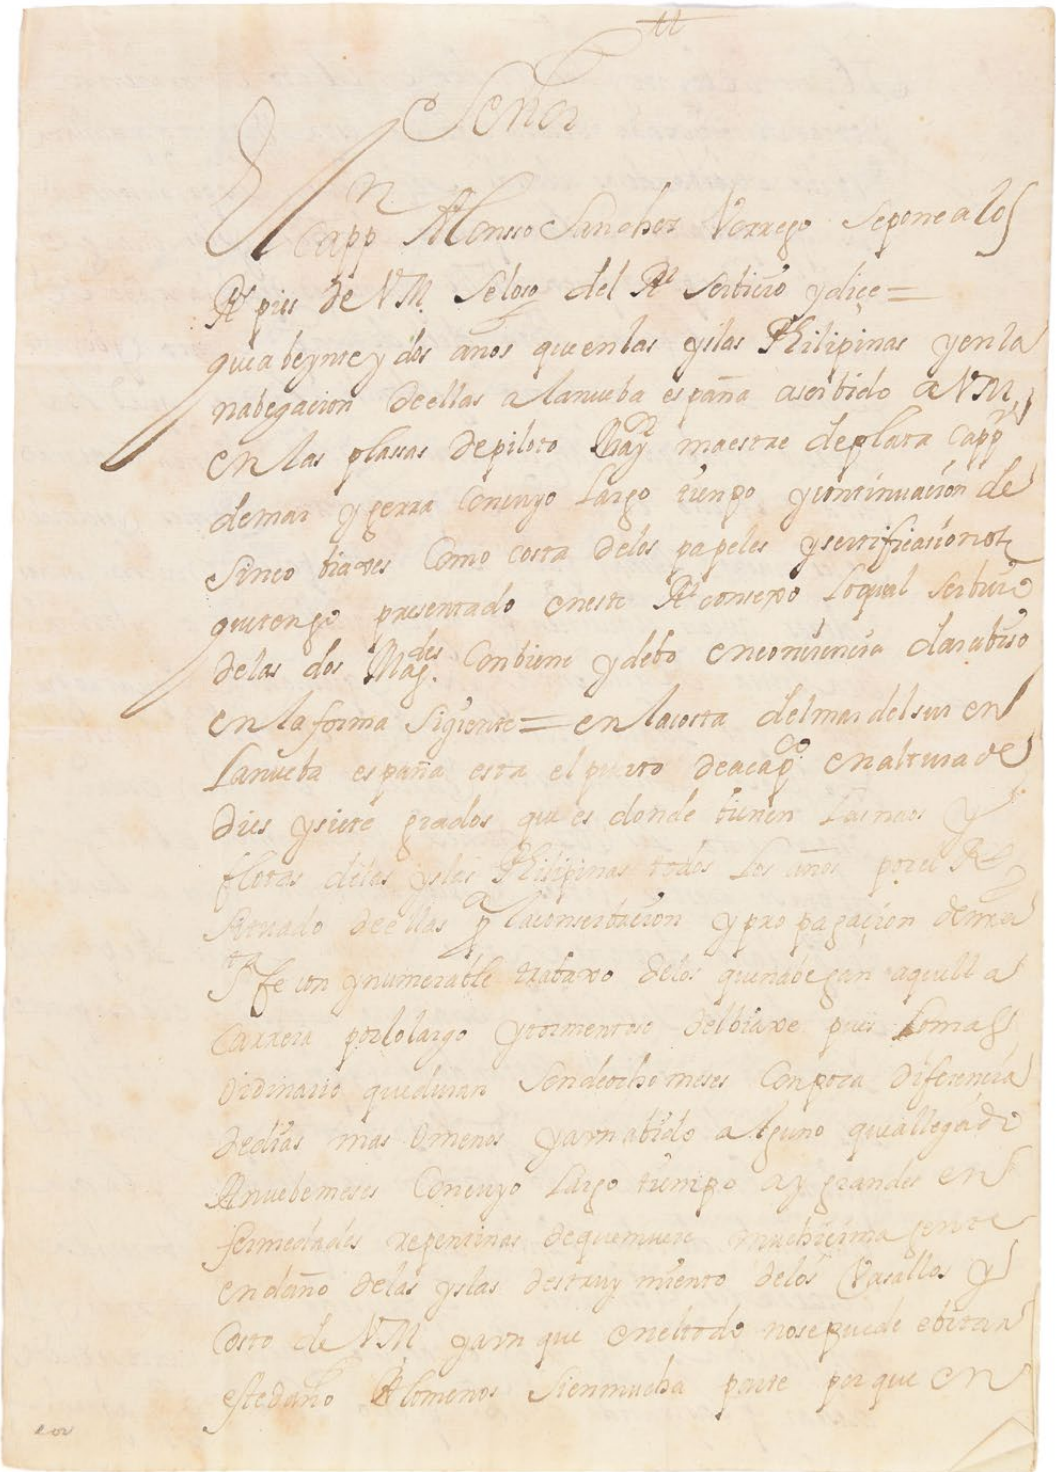 Señor
El Capp.n Alonsso Sanchez Verrego se pone a los
Rs pies de VM seloso del Rl serbicio y dice =
que a beynte y dos años que en las yslas Philipinas y en la
nabegacion de ellas a la nueba españa a serbido a VM
en las plassas de piloto Mayor maestre de plata capp.n
de mar y gerra con cuyo largo tienpo y continuacion de
sinco biaxes como costa de los papeles y sertificasiones
que tengo presentado en este Rl consexo lo qual serbicio
de las dos Mag.des conbiene y debo en conciencia dar abiso
en la forma sigiente = en la costa del mar del sur en
la nueba españa esta el puerto de acap.co en altura de
dies y siete grados que es donde bienen las naos y
flotas de las yslas Philipinas todos los años por el Rl
situado de ellas p.a la conserbacion y propagacion de nra
s.ta fe con ynumerable trabaxo de los que nabegan aquella
carrera por lo largo y tormentoso del biaxe pues lo mas
ordinario que duran son de ocho meses con poca diferencia
de dias mas o menos y aun abido alguno que a llegado
A nuebe meses con cuyo largo tienpo ay grandes en
fermedades repentinas de que muere muchicima gente
en daño de las yslas destruymiento de los Vasallos y
costo de VM y aun que en el todo no se puede ebitar
este daño A lo menos si en mucha parte por que en